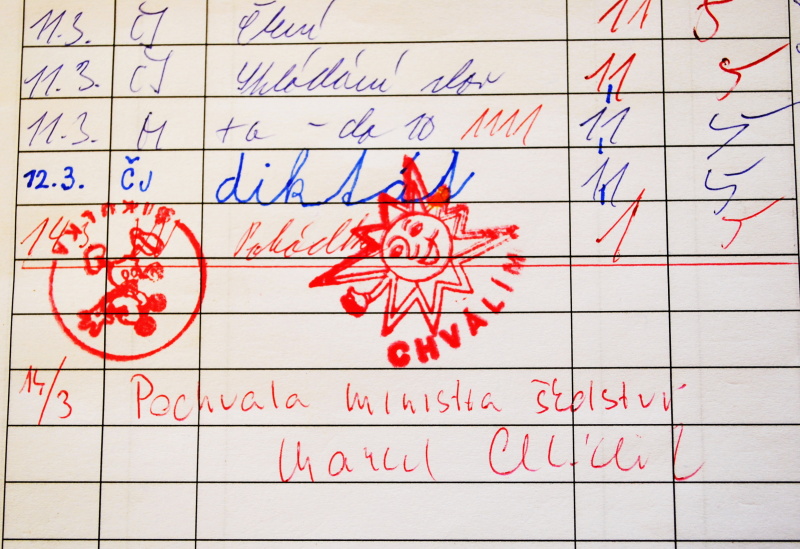 11.3. ČJ Čtení 11 5
11.3. ČJ Skládání slov 11 5
11.3. M +a - do 10 1111 11 5
12.3. ČJ diktát 11 5
14.3. 1 5
ŠIKULKA
CHVÁLÍM
14/3 Pochvala ministra školství
Marcel Chládek